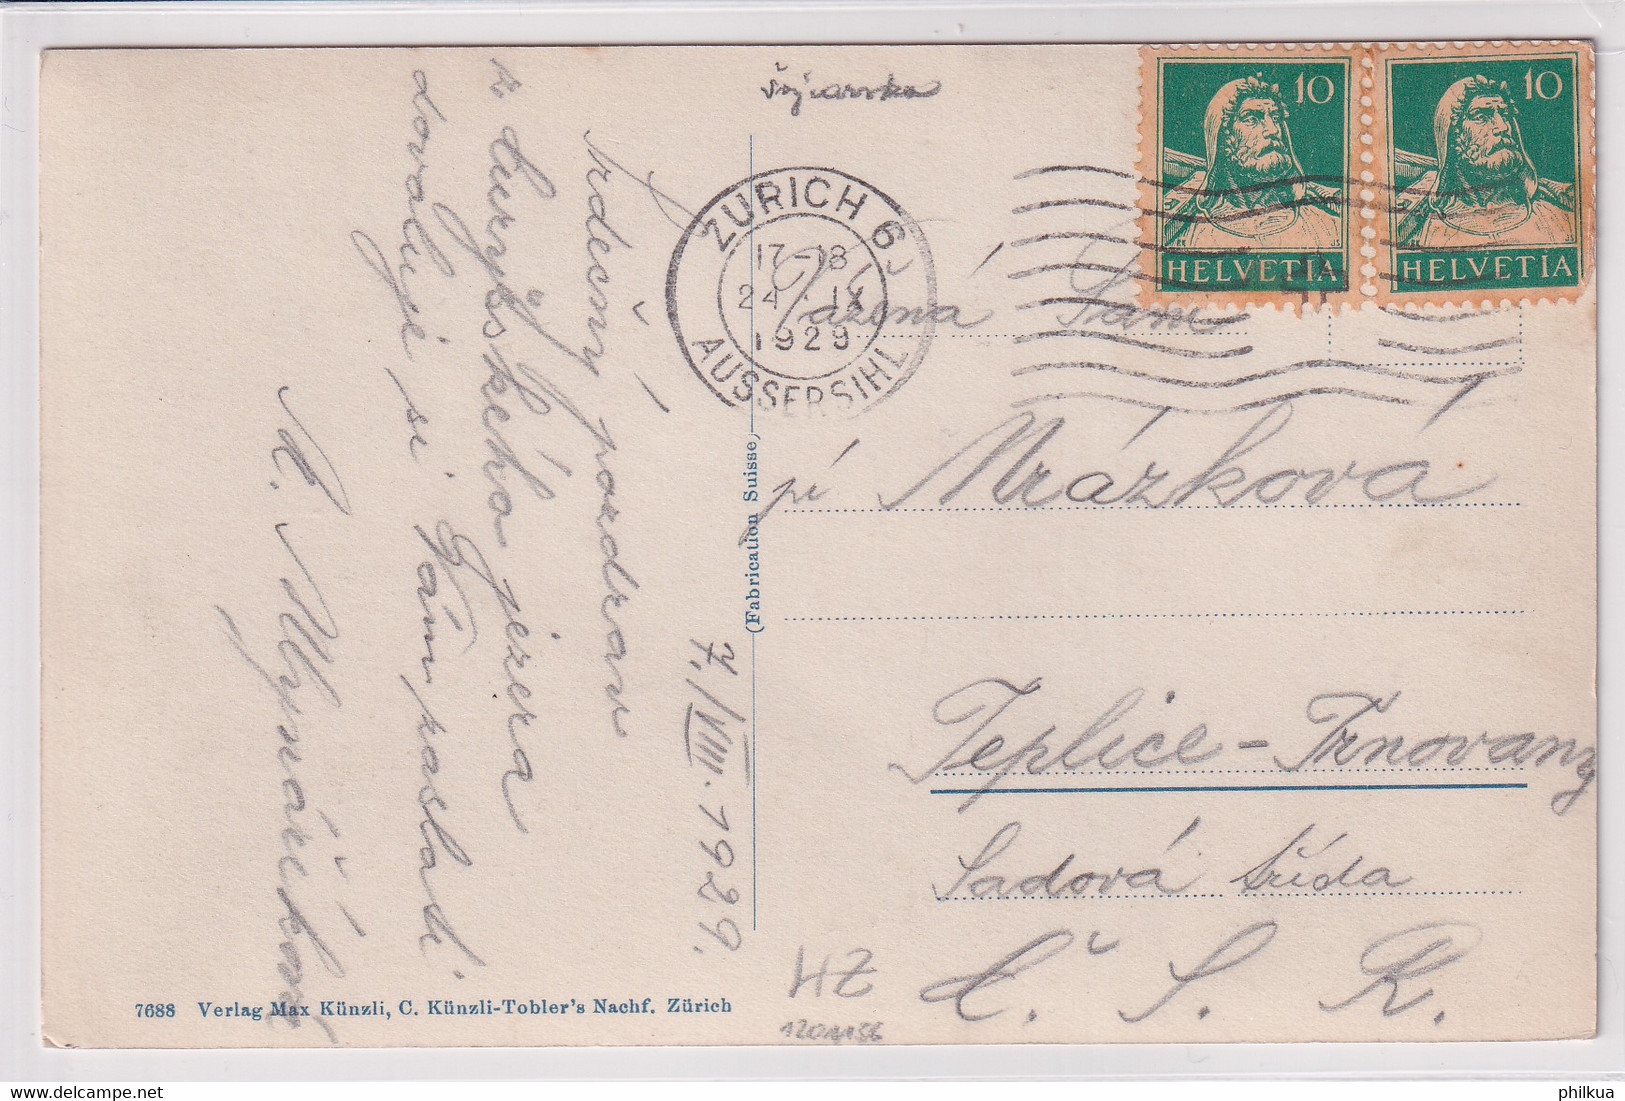 Švýcarsko
10
10
HELVETIA
HELVETIA
ZÜRICH 6
17-18
24. IX
1929
AUSSERSIHL
7./VIII. 1929.
Srdečný pozdrav
z Curyšského jezera
dovoluji si Vám poslati
M. Mlynáříková
Vážená Paní
pí Mrázková
Teplice-Trnovany
Sadová třída
Č. S. R.
(Fabrication Suisse)
7688 Verlag Max Künzli, C. Künzli-Tobler's Nachf. Zürich
HZ
philkua